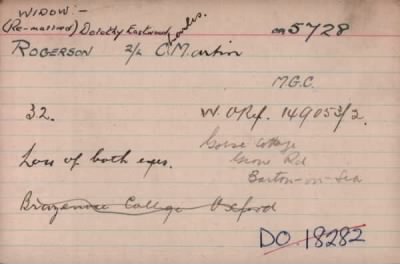 WIDOW:-
(Re-married) Dorothy Eastwood
OR 5728
ROGERSON 2/Lt C. Martin
M.G.C.
32. W.O Ref. 149053/2.
Gorse Cottage
Loss of both eyes. Grove Rd
Barton-on-Sea
Brazenose College Oxford
DO 18282